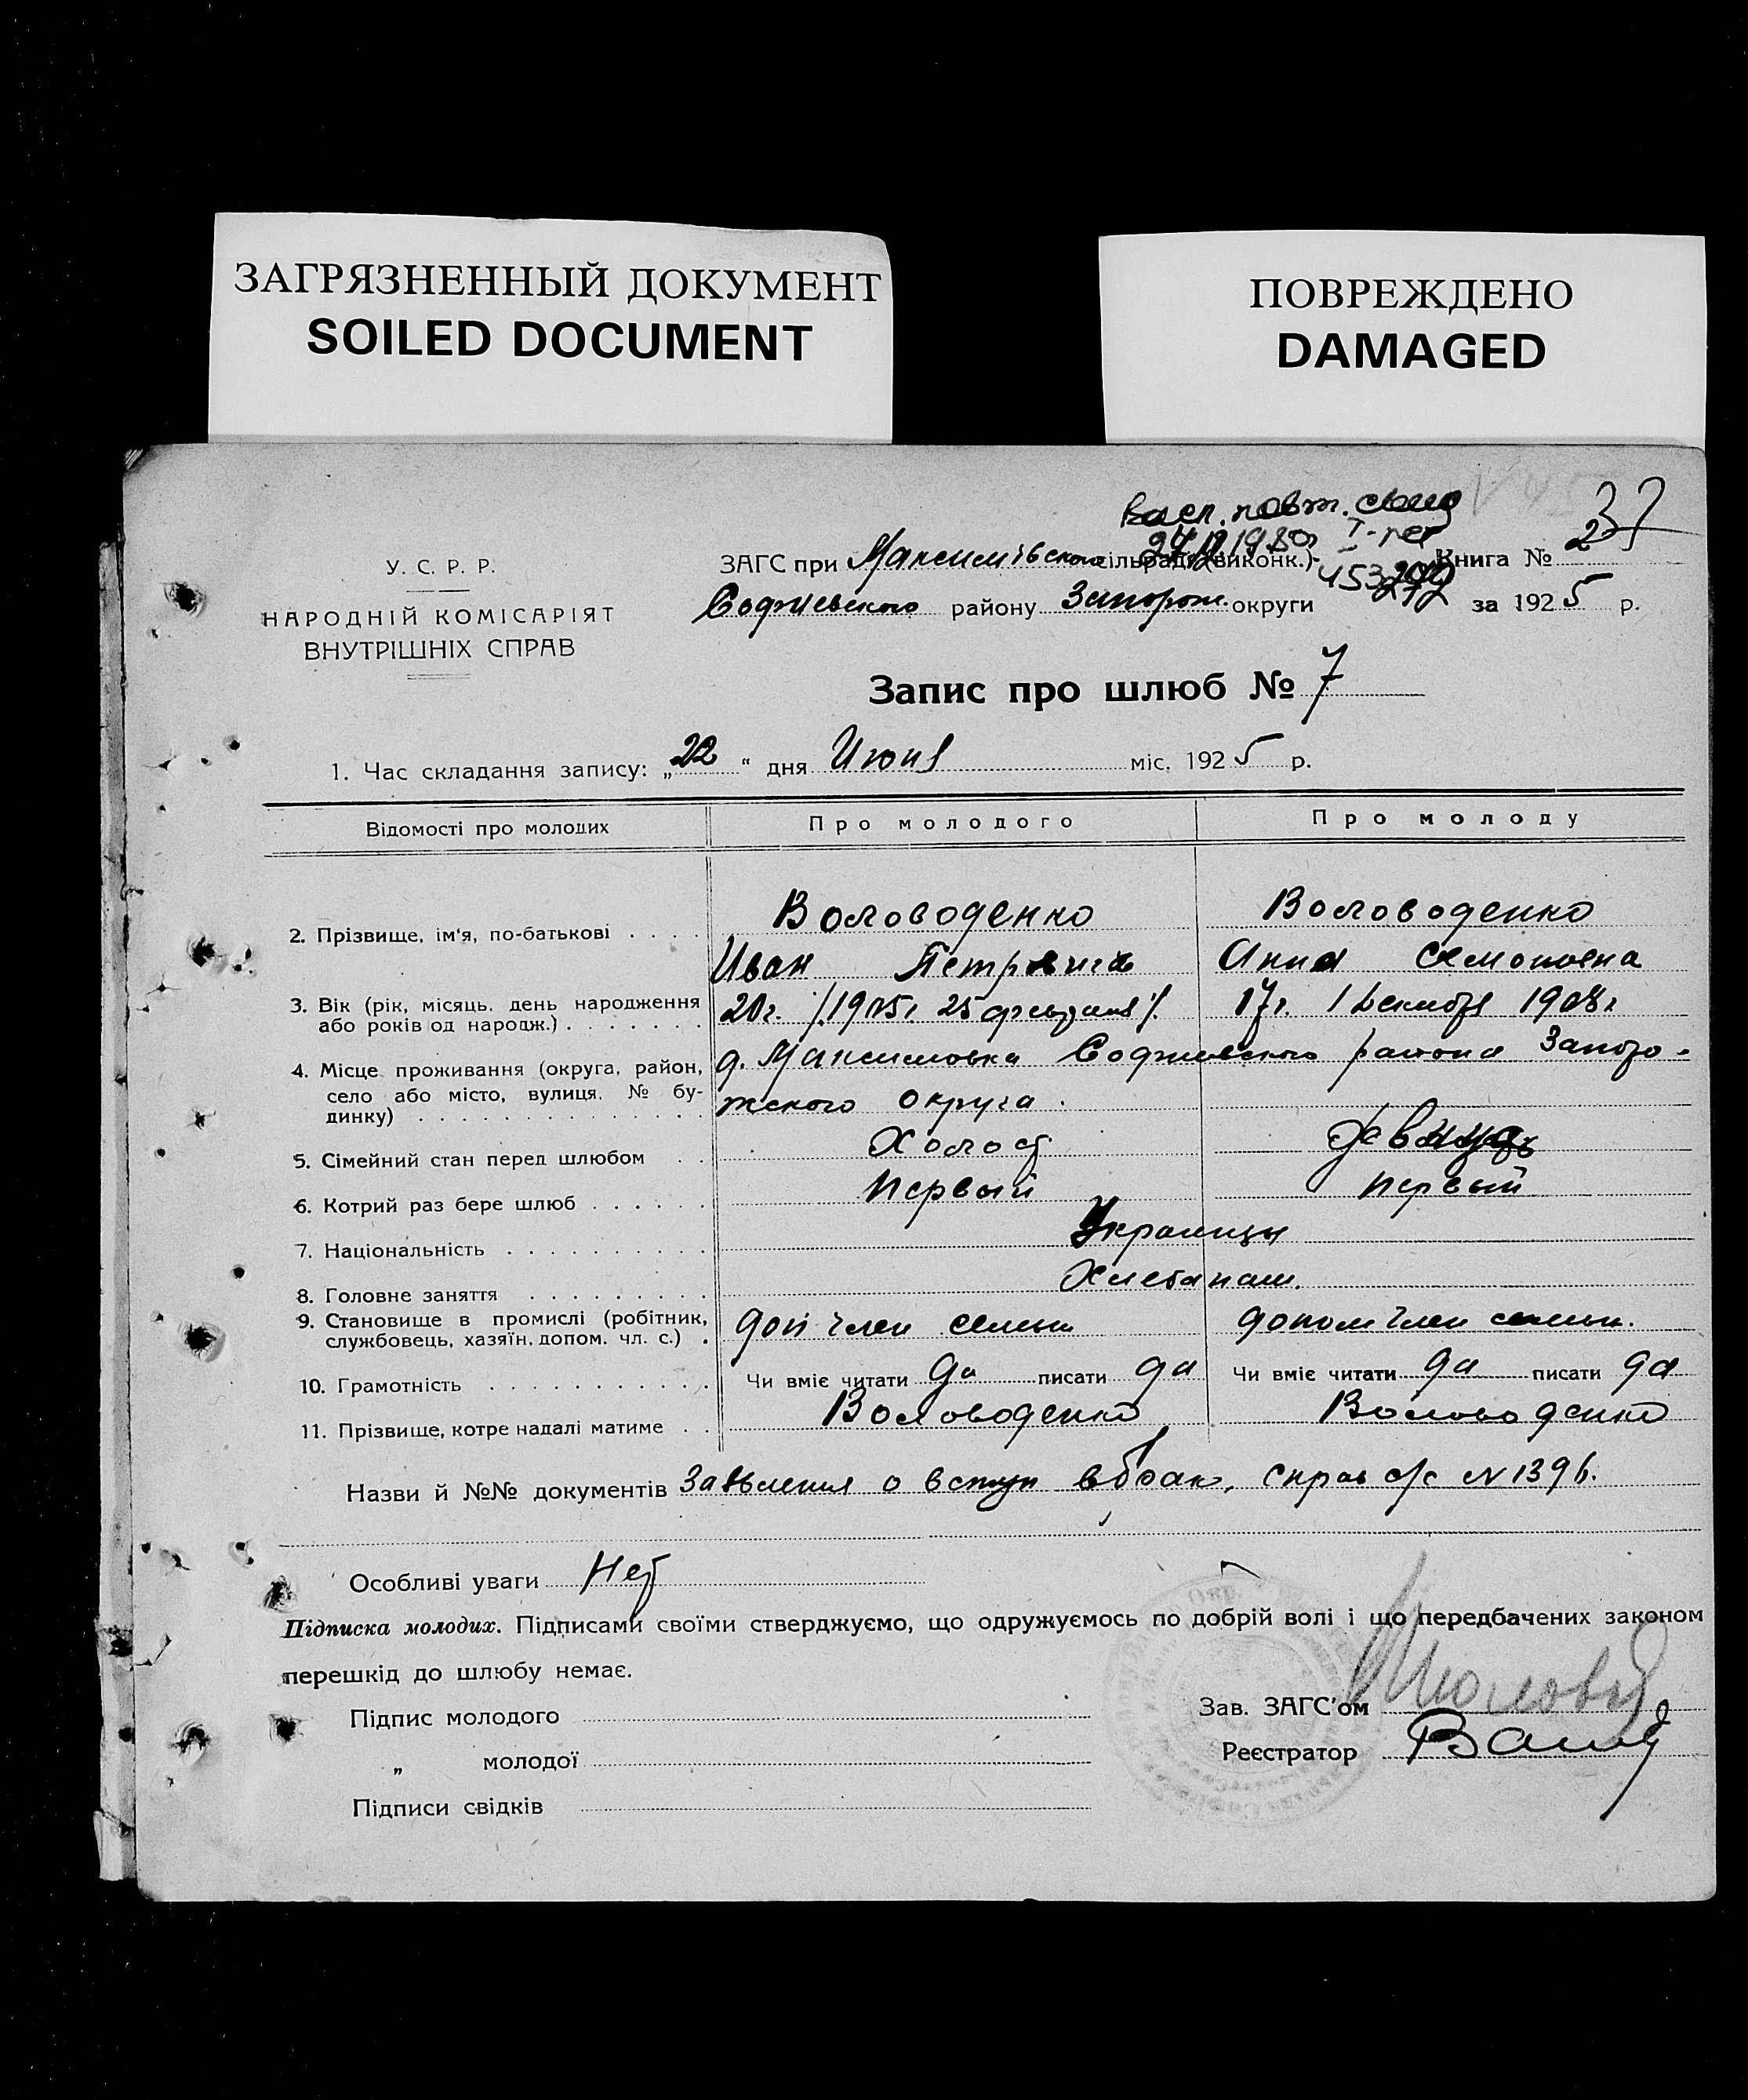 ЗАГРЯЗНЕННЫЙ ДОКУМЕНТ
SOILED DOCUMENT
ПОВРЕЖДЕНО
DAMAGED
У. С. Р. Р.
НАРОДНІЙ КОМІСАРІЯТ
ВНУТРІШНІХ СПРАВ
ЗАГС при сільраді (виконк.) Книга № 2
Софиевского району Запорож. округи за 1925 р.
Запис про шлюб № 7
1. Час складання запису: „22“ дня Июня міс. 1925 р.
Відомості про молодих Про молодого Про молоду
2. Прізвище, ім'я, по-батькові . . . . Воловоденко Воловоденко
Иван Петрович Анна Семоновна
3. Вік (рік, місяць, день народження
або років од народж.) . . . . . . . 20 г. /.1905 г. 25 февраля/. 17 г. 1 Декабря 1908 г
4. Місце проживання (округа, район, д. Максимовка Софиевского района Запоро-
село або місто, вулиця, № бу-
динку) . . . . . . . . . . . . . . жского округа.
5. Сімейний стан перед шлюбом . . Холост девица
6. Котрий раз бере шлюб . . . . . . Первый первый
7. Національність . . . . . . . . . . Украинцы
8. Головне заняття . . . . . . . . . Хлебопаш.
9. Становище в промислі (робітник,
службовець, хазяїн, допом. чл. с.) . доп член семьи допом член семьи.
10. Грамотність . . . . . . . . . . . Чи вміє читати да писати да Чи вміє читати да писати да
11. Прізвище, котре надалі матиме . . Воловоденко Воловоденко
Назви й №№ документів Заявления о вступ в брак, справ с/с N 1396.
Особливі уваги Нет
Підписка молодих. Підписами своїми стверджуємо, що одружуємось по добрій волі і що передбачених законом
перешкід до шлюбу немає.
Підпис молодого Зав. ЗАГС'ом
„ молодої Реєстратор
Підписи свідків